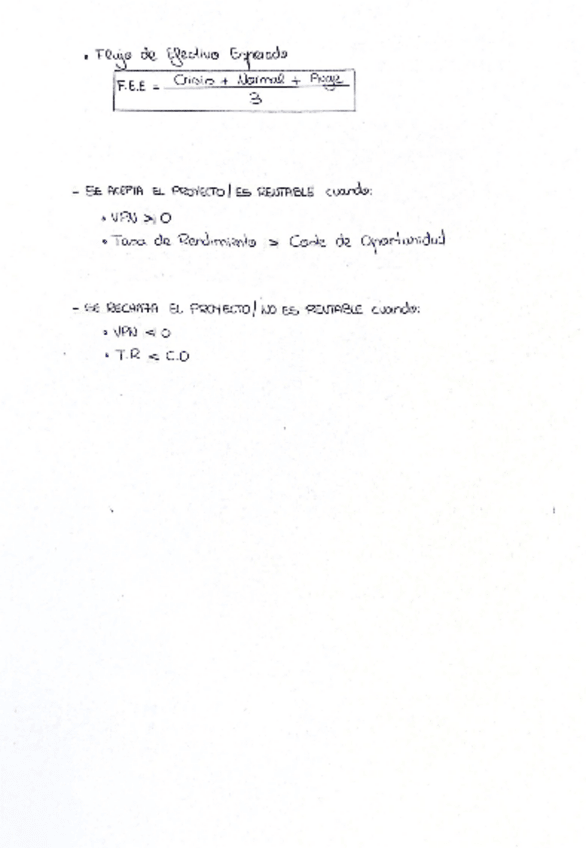 • Flujo de Efectivo Esperado
F.E.E = Crisis + Normal + Auge
3
- SE ACEPTA EL PROYECTO / ES RENTABLE cuando:
• VPN > 0
• Tasa de Rendimiento > Coste de Oportunidad
- SE RECHAZA EL PROYECTO / NO ES RENTABLE cuando:
• VPN < 0
• T.R < C.O